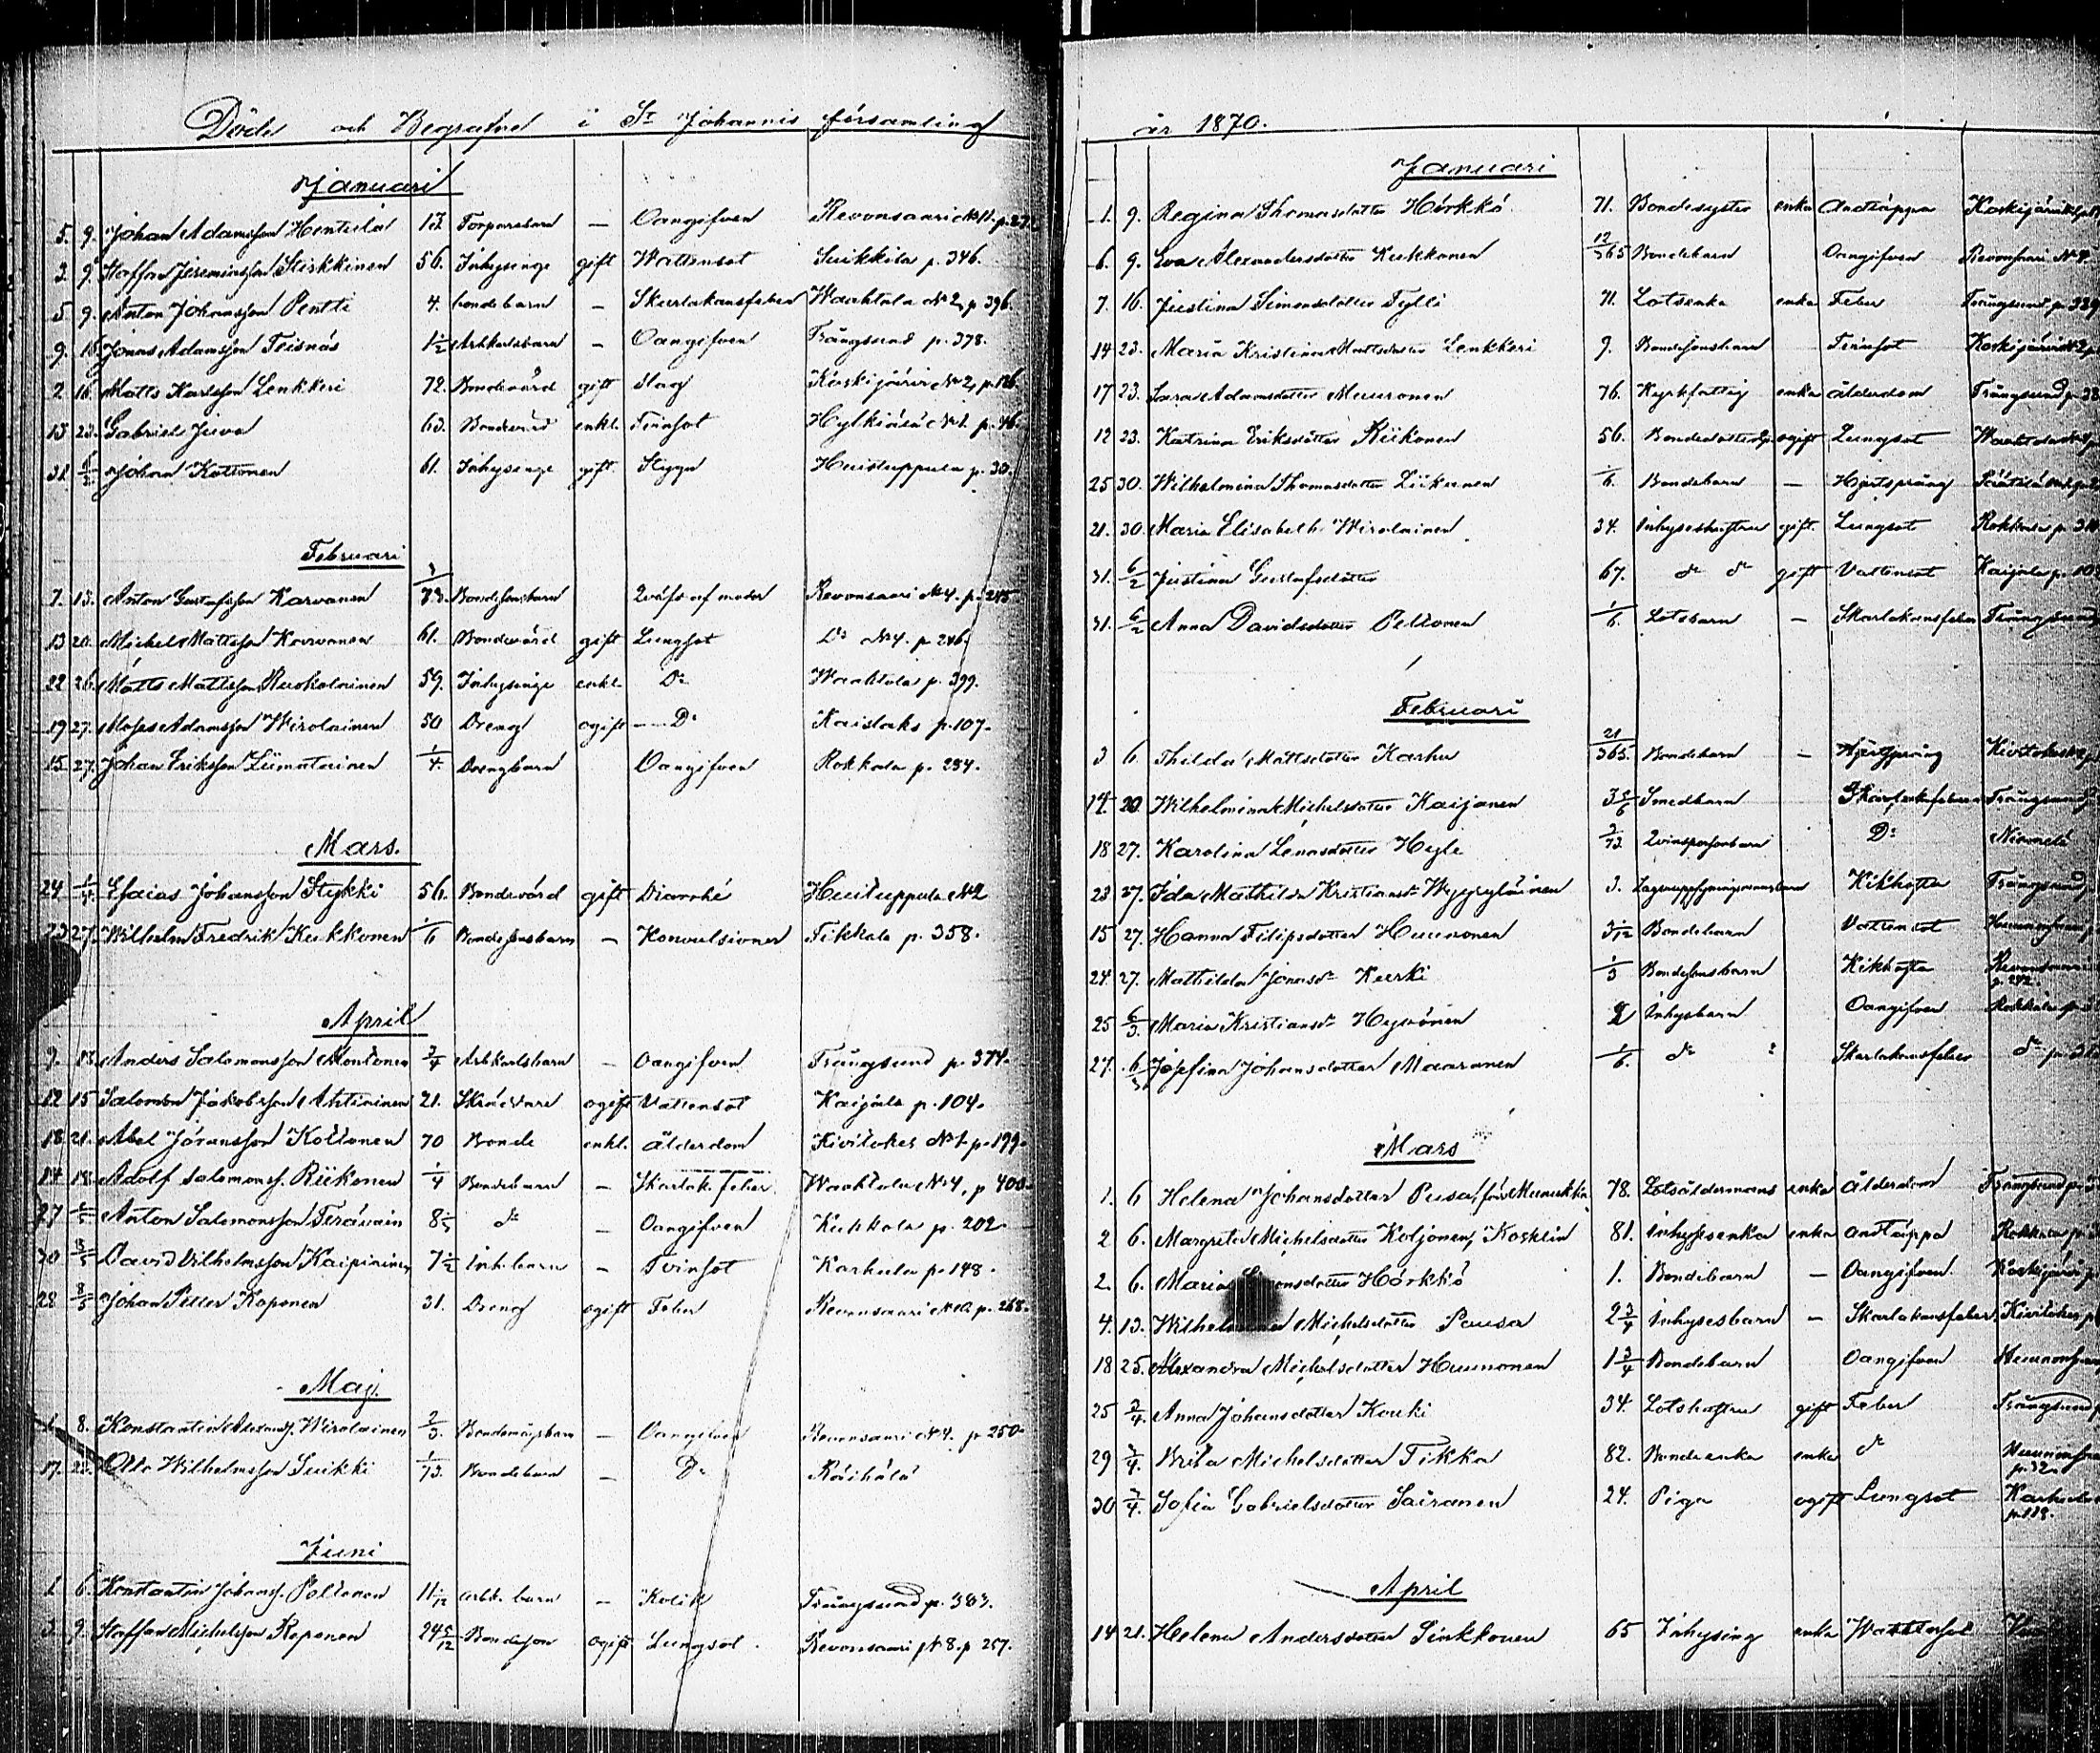 Döde och Begrafne i St Johannis församling
Januari
5. 9. Johan Adamsson Henttula Torparebarn — Oangifven Revonsaari
3. 9. Staffan 56. Inhysinge gift Wattensot Suikkila p. 346.
5 9. Anton Johansson Pentti 4. bondebarn — Skarlakansfeber Waahtola No 2, p 396.
9. 16 Jonas Adamsson 1 1/2 Arbkarlsbarn — Oangifven Trångsund p. 378.
2 16 Matts Karlsson Lenkkeri 72. Bondevärd gift Slag Koskijärvi No 2, p. 126
13 23. Gabriel Juva 63. Bondevärd enkl. Tvinsot Hylkiälä No 1. p. 46.
31 6/2 Johan Kottonen 61. Inhysinge gift. Stygn Huistuppula p. 30.
Februari
7. 13. Anton Gustafsson Karvanen Bondesonsbarn Qväfd af moder Revonsaari No 4. p. 245
13 20. Michel Mattsson Karvanen 61. Bondevärd gift Lungsot Do No 4. p 246.
22 26. Matts Mattsson Ruokolainen 59. Inhysinge enkl. Do Waahtola p. 399.
19 27. Moses Adamsson Wirolainen 50 Dreng ogift — Do Kaislaks p. 107.
15 27. Johan Eriksson Liimatainen 1/4. Drengbarn Oangifven Rokkala p. 284.
Mars.
24 1/4 Esaias Johansson Stykki 56. Bondevärd gift Diarrhé Huistuppula No 2
23 27. Wilhelm Fredrik Kukkonen 1/6 Bondesonsbarn — Konvulsioner Tikkala p. 358.
April
9. Anders Salomonsson Montonen 3/4 Arbkarlsbarn — Oangifven Trångsund p. 374.
12 15 Salomon Jakobsson Ahtiainen 21. Skräddare ogift Vattensot Kaijala p. 104.
18 21. Abel Göransson Kottonen 70 Bonde enkl. Ålderdom Kivitokes No 1 p. 199.
14 18. Adolf Salomonss. Riikonen 1/4 Bondebarn — Skarlak. feber Waahtola No 4, p 400.
27 Anton Salomonsson Teräväin do — Oangifven Kukkola p. 202
30 David Vilhelmsson Kaipiainen 7 1/2 Inh. barn — Tvinsot Karhula p. 148.
28 8/5 Johan Petter Koponen 31. Dreng ogift Feber Revonsaari p. 268.
Maj.
1. 8. Konstantin Adamss. Wirolainen 2/3. — Oangifven Revonsaari No 4. p 250.
17. 22. Otto Wilhelmsson Suikki Bondebarn — Do Räihälä
Juni
1 6. Konstantin Johanss. Peltonen 11/12 arbk. barn — Kolik Trångsund p. 383.
3. 9. Staffan Michelsson Koponen 24 5/12 Bondeson ogift Lungsot. Revonsaari No 8. p 257.
år 1870.
Januari
1. 9. Regina Thomasdotter Hörkkö 71. Bondesyster enka Andtäppa Koskijärvi
6. 9. Eva Alexandersdotter Kukkonen 12/365 Bondebarn Oangifven Revonsaari No 4.
7. 16. Justina Simonsdotter Tylli 71. Lotsenka enka Feber Trångsund p. 389
14 23. Maria Kristina Mattsdotter Lenkkeri 9. Bondesonsbarn Tvinsot Koskijärvi No 2,
17 23. Sara Adamsdotter Muuronen 76. Kyrkfattig enka ålderdom Trångsund p. 38
12 23. Katrina Eriksdotter Riikonen 56. Bondedotter ogift Lungsot Waahtola
25 30. Wilhelmina Thomasdotter Liikanen 1/6. Bondebarn — Hjertsprång
21. 30. Maria Elisabeth Wirolainen 34. Inhyseshustru gift. Lungsot Rokkala p. 31
31. 6/2 Justina Gustafsdotter 67. do do gift Vattensot Kaijala p. 10
31. 6/2 Anna Davidsdotter Peltonen 1/6. Lotsbarn — Skarlakansfeber Trångsund
Februari
3 6. Thilda Mattsdotter Karhu 21/365. Bondebarn — Hjertsprång Kivitokes
14 20 Wilhelmina Michelsdotter Kaijanen 3 5/6 Smedbarn Skarlaksfeber Trångsund
18 27. Karolina Lenasdotter Hegle Qvinspersonbarn Do Niemelä
23 27. Ida Mathilda Kristiansdr 3. Kikhosta Trångsund
15 27. Hanna Filipsdotter Huunonen Bondebarn Vattensot
24. 27. Mathilda Jonasdr Kurki 1/3 Bondesonsbarn Kikhosta Revonsaari
p. 242.
25 6/3. Maria Kristiansdr Hyvönen 2 Inhysbarn Oangifven Rokkala
27. 6/3 Josefina Johansdotter Maaranen 1/6. do Skarlakansfeber do
Mars
1. 6 Helena Johansdotter Pusa, född 78. Lotsåldermans enka ålderdom Trångsund
2 6. Margreta Michelsdotter Koljonen, Kosklin 81. inhysesenka enka andtäppa Rokkala
2. 6. Maria Hörkkö 1. Bondebarn — Oangifven. Koskijärvi
4. 13. Wilhelmina Michelsdotter Pausa 2 3/4 Inhysesbarn — Skarlakansfeber Kivitokes
18 25. Alexandra Michelsdotter Huunonen 1 3/4 Bondebarn Oangifven
25 3/4. Anna Johansdotter Kouki 34. Lotshustru gift Feber Trångsund
29 3/4. Brita Michelsdotter Tikka 82. Bondeenka enka do
30 3/4. Sofia Gabrielsdotter Sairanen 24. Piga ogift Lungsot Karhula
p. 118.
April
14 21. Helena Andersdotter Sinkkonen 65 Inhysing enka Wattensot